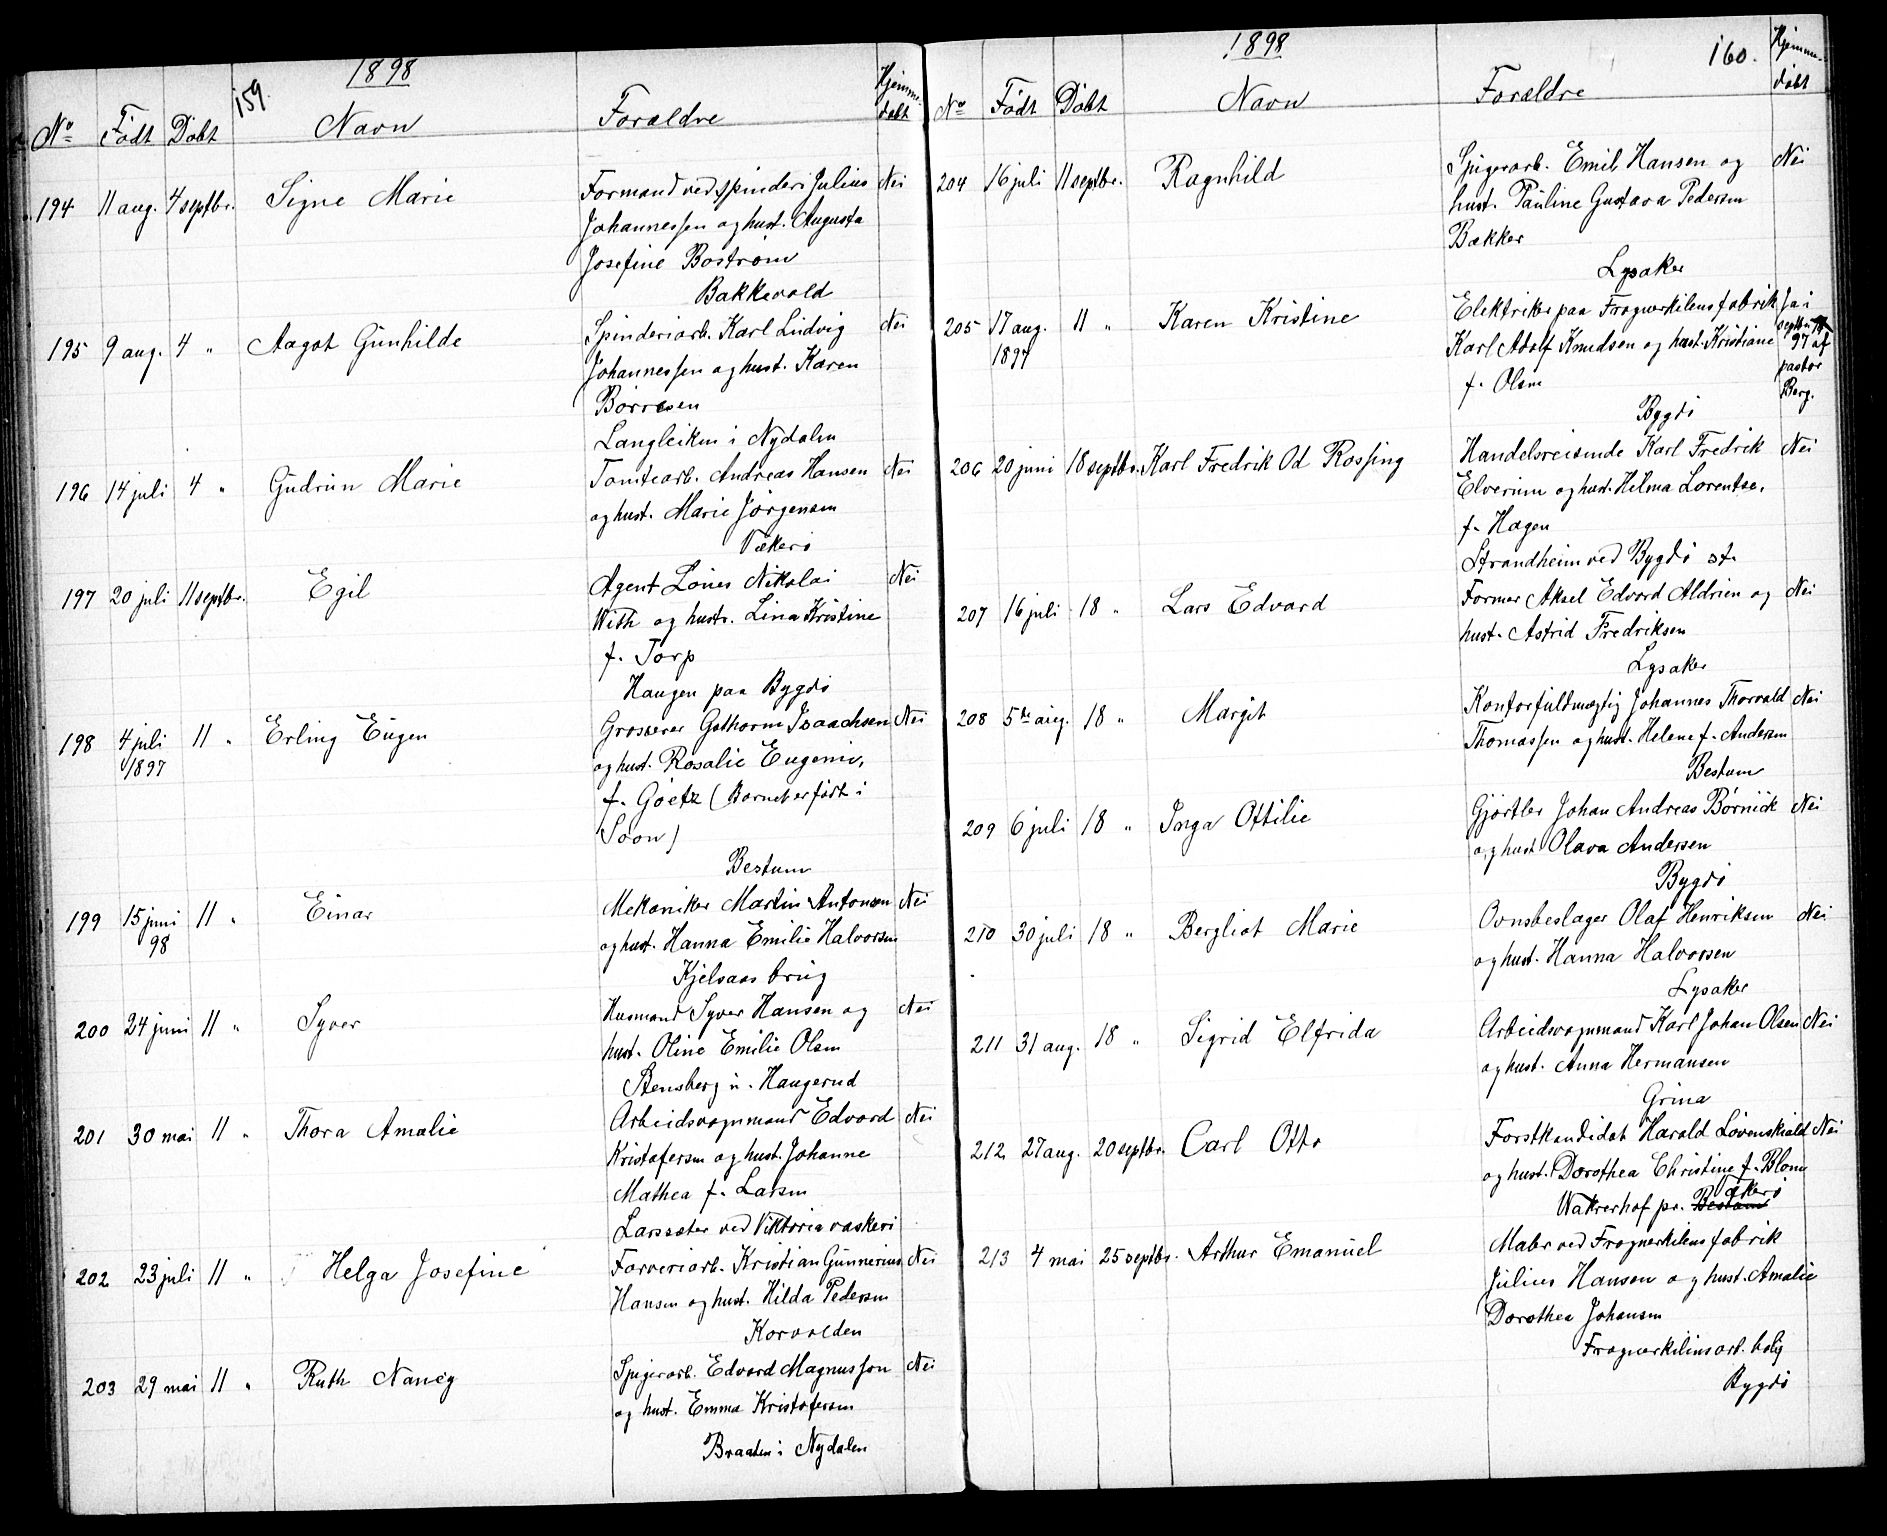 1898
159.
No Født Døbt Navn Forældre Hjemme-
døbt
194 11 aug. 4 septbr. Signe Marie Formand ved spinderi Julius Nei
Johannessen og hust. Augusta
Josefine Bostrøm
Bakkevold
195 9 aug. 4 " Aagot Gunhilde Spinderiarb. Karl Ludvig Nei
Johannessen og hust. Karen
Børresen
Langleiken i Nydalen
196 14 juli 4 " Gudrun Marie Tomtearb. Andreas Hansen Nei
og hust. Marie Jørgensen
Vækerø
197 20 juli 11 septbr. Egil Agent Nikolai Nei
With og hustr. Lina Kristine
f. Torp
Haugen paa Bygdø
198 4 juli 11 " Erling Eugen Grosserer Gothorm Isaachsen Nei
1897 og hust. Rosalie Eugenie,
f. Goetz (Barnet er født i
Soon)
Bestum
199 15 juni 11 " Einar Mekaniker Martin Antonsen Nei
98 og hust. Hanna Emilie Halvorsen
Kjelsaas brug
200 24 juni 11 " Syver Husmand Syver Hansen og Nei
hust. Oline Emilie Olsen
Stensberg u. Haugerud
201 30 mai 11 " Thora Amalie Arbeidsvognmand Edvard Nei
Kristofersen og hust. Johanne
Mathea f. Larsen
Larssæter ved Viktoria vaskeri
202 23 juli 11 " Helga Josefine Farveriarb. Kristian Gunnerius Nei
Hansen og hust. Hilda Pedersen
Korvolden
203 29 mai 11 " Ruth Nancy Spigerarb. Edvard Magnussen Nei
og hust. Emma Kristofersen
Braaten i Nydalen
1898
160.
No Født Døbt Navn Forældre Hjemme-
døbt
204 16 juli 11 septbr. Ragnhild Spigerarb. Emil Hansen og Nei
hust. Pauline Gustava Pedersen
Bækker
Lysaker
205 17 aug. 11 " Karen Kristine Elektriker paa Frognerkilens fabrik Ja i
1897 Karl Adolf Knudsen og hust. Kristiane septbr.
97 af
f. Olsen pastor
Berg.
Bygdø
206 20 juni 18 septbr. Karl Fredrik Od Rossing Handelsreisende Karl Fredrik Nei
Elverum og hust. Helma Lorentse,
f. Hagen
Strandheim ved Bygdø st.
207 16 juli 18 " Lars Edvard Former Aksel Edvard Aldrien og Nei
hust. Astrid Fredriksen
Lysaker
208 5te aug. 18 " Margit Kontorfuldmægtig Johannes Thorvald Nei
Thomassen og hust. Helene f. Andersen
Bestum
209 6 juli 18 " Inga Ottilie Gjørtler Johan Andreas Børnick Nei
og hust Olava Andersen
Bygdø
210 30 juli 18 " Bergliot Marie Ovnsbeslager Olaf Henriksen Nei
og hust. Hanna Halvorsen
Lysaker
211 31 aug. 18 " Sigrid Elfrida Arbeidsvognmand Karl Johan Olsen Nei
og hust. Anna Hermansen
Grina
212 27 aug. 20 septbr. Carl Otto Forstkandidat Harald Løvenskiold Nei
og hust. Dorothea Christine f. Blom
Vækerø
Wækerhof pr. Bestum
213 4 mai 25 septbr. Arthur Emanuel Maler ved Frognerkilens fabrik
Julius Hansen og hust. Amalie
Dorothea Johansen
Frognerkilens arb. bolig
Bygdø